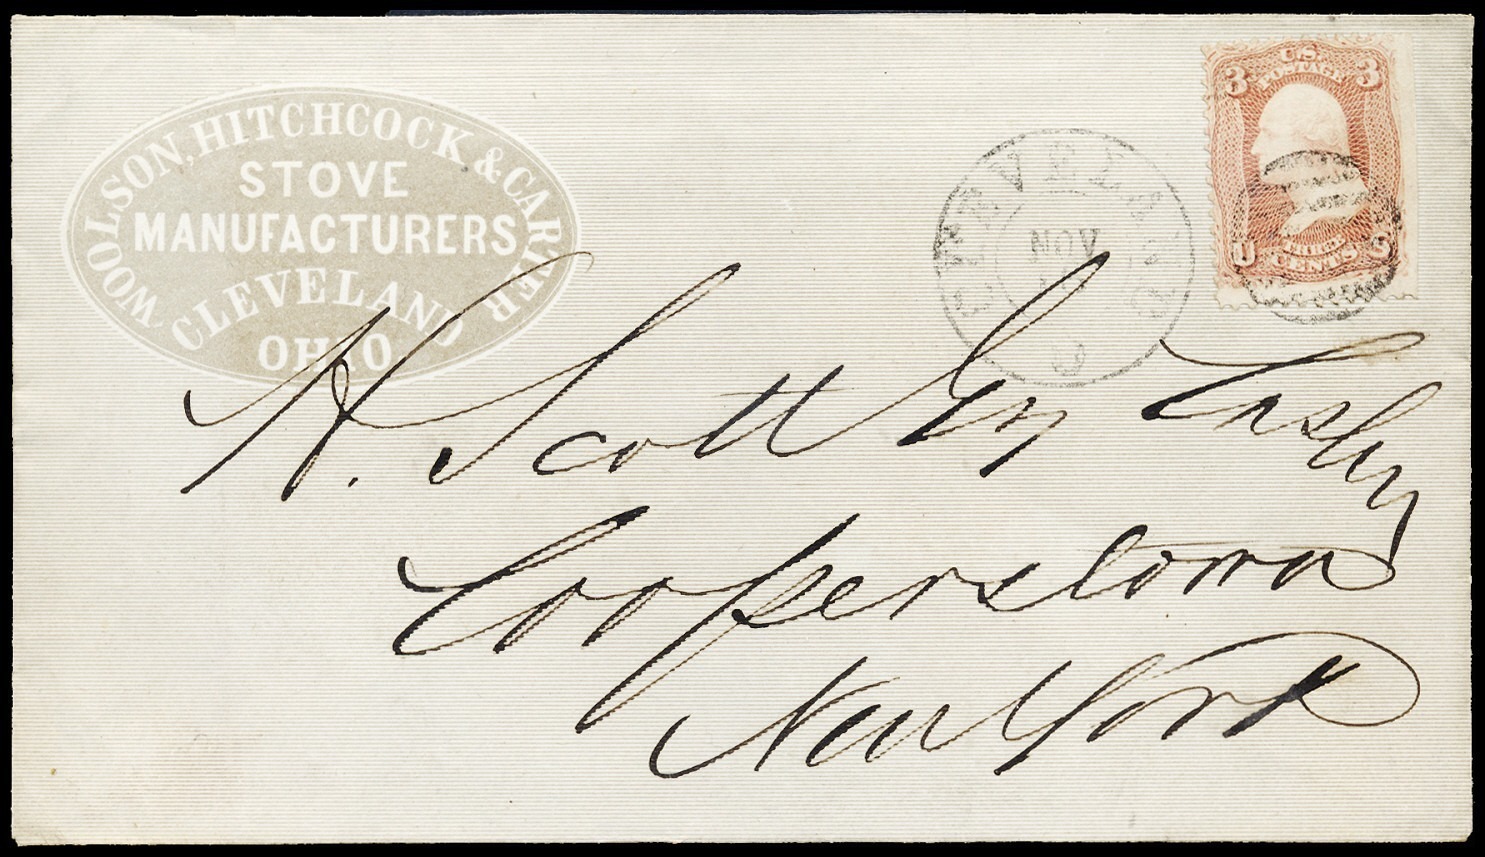 WOOLSON, HITCHCOCK & CARTER
STOVE
MANUFACTURERS
CLEVELAND
OHIO
CLEVELAND
NOV
O
U.S.
POSTAGE
3 3
U THREE S
CENTS
H. Scott
Cooperstown
New York